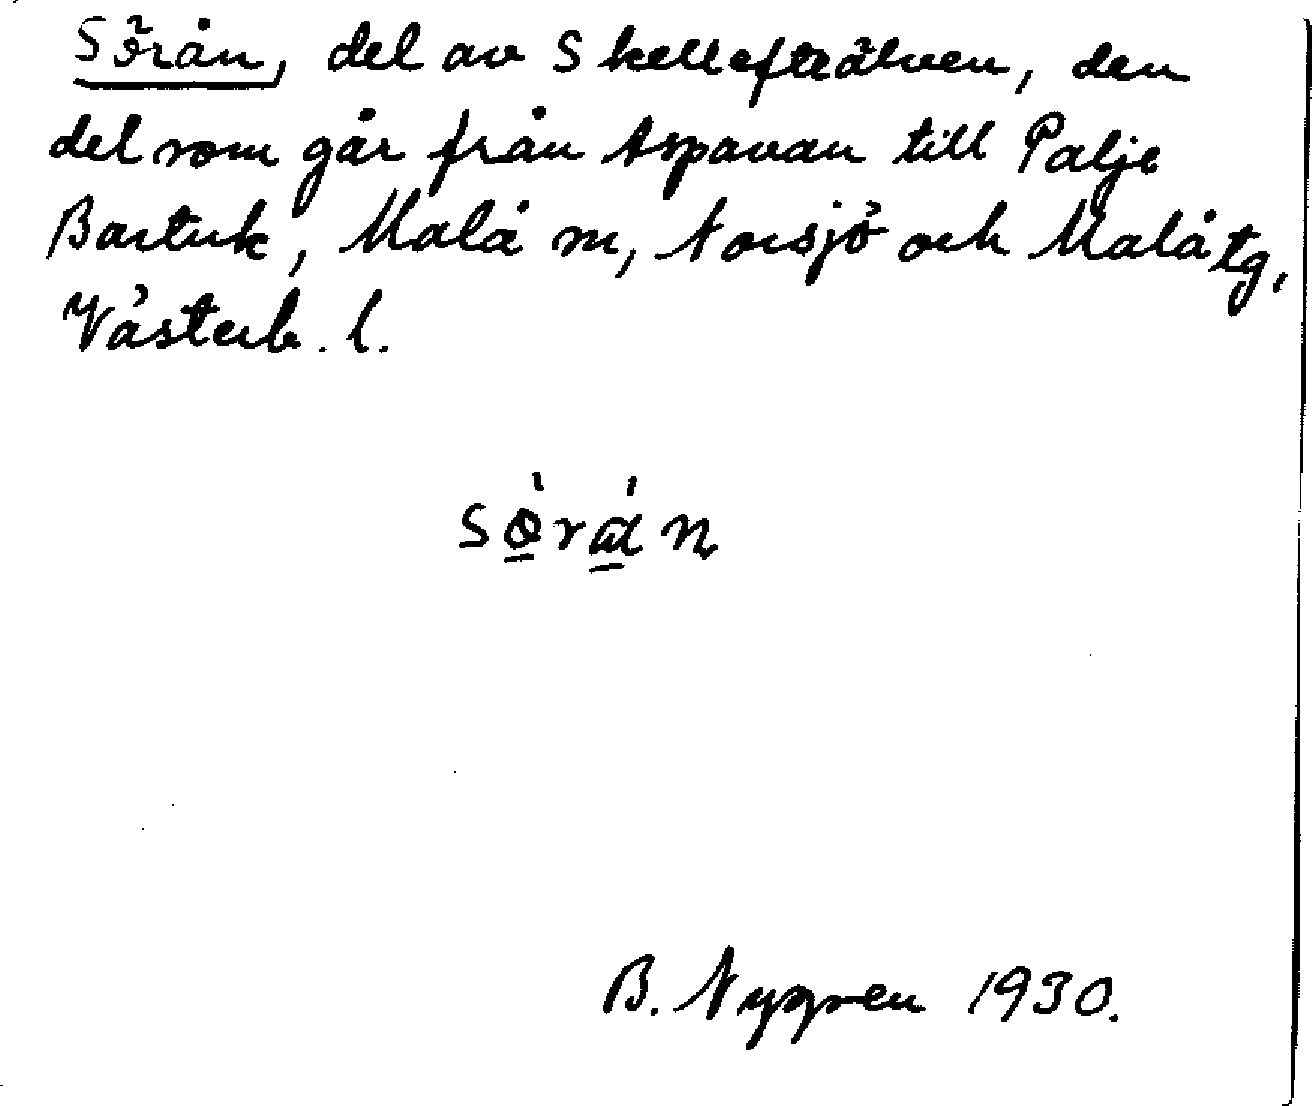 Sörån, del av Skellefteälven, den
del som går från Aspavan till Palje
Bastuk, Malå m, Norsjö och Malå tg,
Västerb. l.
B. Nygren 1930.